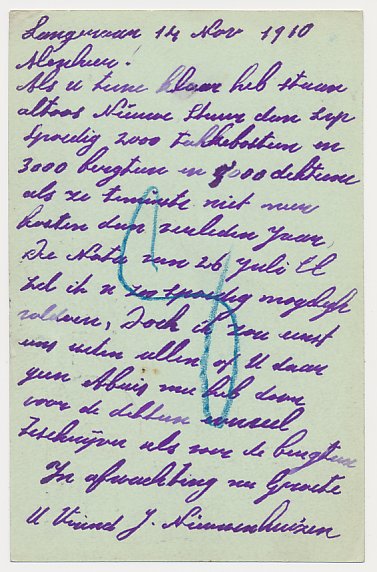 Langeraar 14 Nov 1910
Mijnheer!
Als u teene klaar heb staan
altoos Nieuwe stuur dan s.v.p
spoedig 2000 takkebosteen en
3000 bergteen en 3000 dekteene
als ze tenminste niet meer
kosten dan verleden Jaar,
De Nota van 26 Juli ll
zel ik u zo spoedig mogelijk
voldoen, Doch ik zou eerst
uns weten willen of U daar
geen Abuis mee heb door
voor de dekteen eveveel
te schrijven als voor de bergteen
In afwachting na Groete
U Vriend J. Nieuwenhuizen